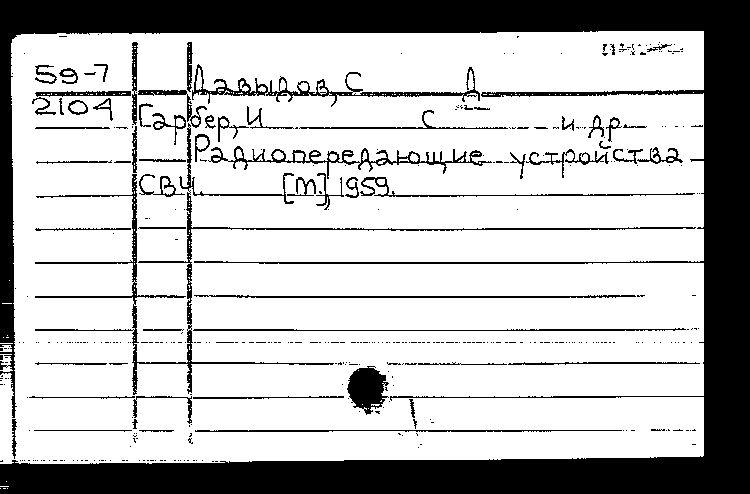 59-7 Давыдов, С Д
2104 Гарбер, И С и др.
Радиопередающие устройства
СВЧ. [М.], 1959.